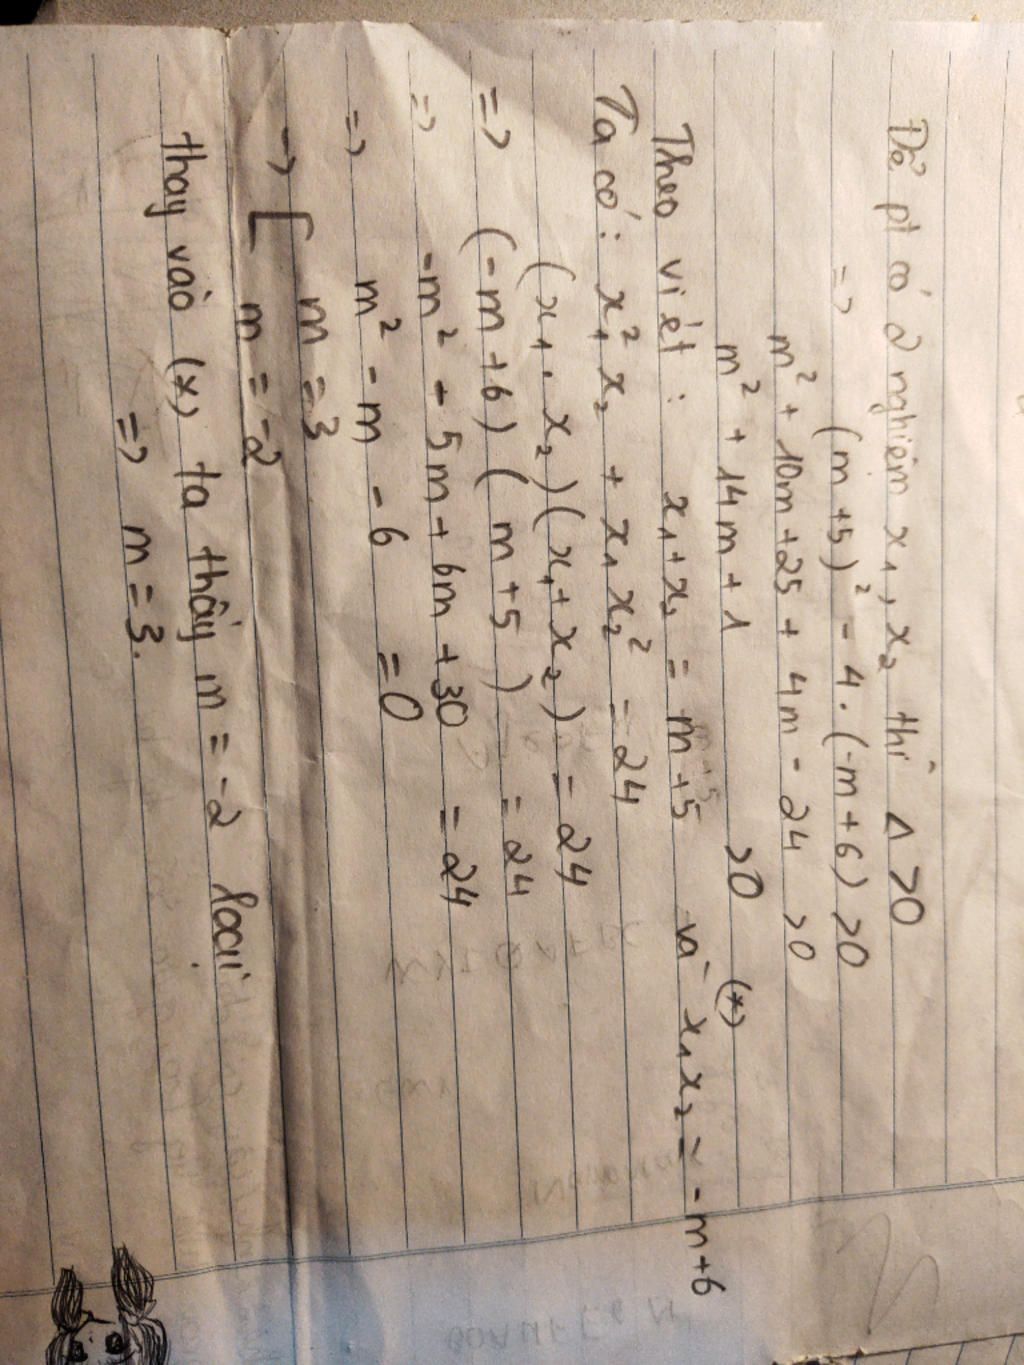 Để pt có 2 nghiệm x₁, x₂ thì Δ > 0
=> (m+5)² - 4.(-m+6) > 0
m² + 10m + 25 + 4m - 24 > 0
m² + 14m + 1 > 0 (*)
Theo viét : x₁ + x₂ = m+5 và x₁x₂ = -m+6
Ta có : x₁²x₂ + x₁x₂² = 24
(x₁.x₂)(x₁+x₂) = 24
=> (-m+6)(m+5) = 24
=> -m² - 5m + 6m + 30 = 24
=> m² - m - 6 = 0
=> [ m = 3
m = -2
thay vào (*) ta thấy m = -2 loại
=> m = 3.